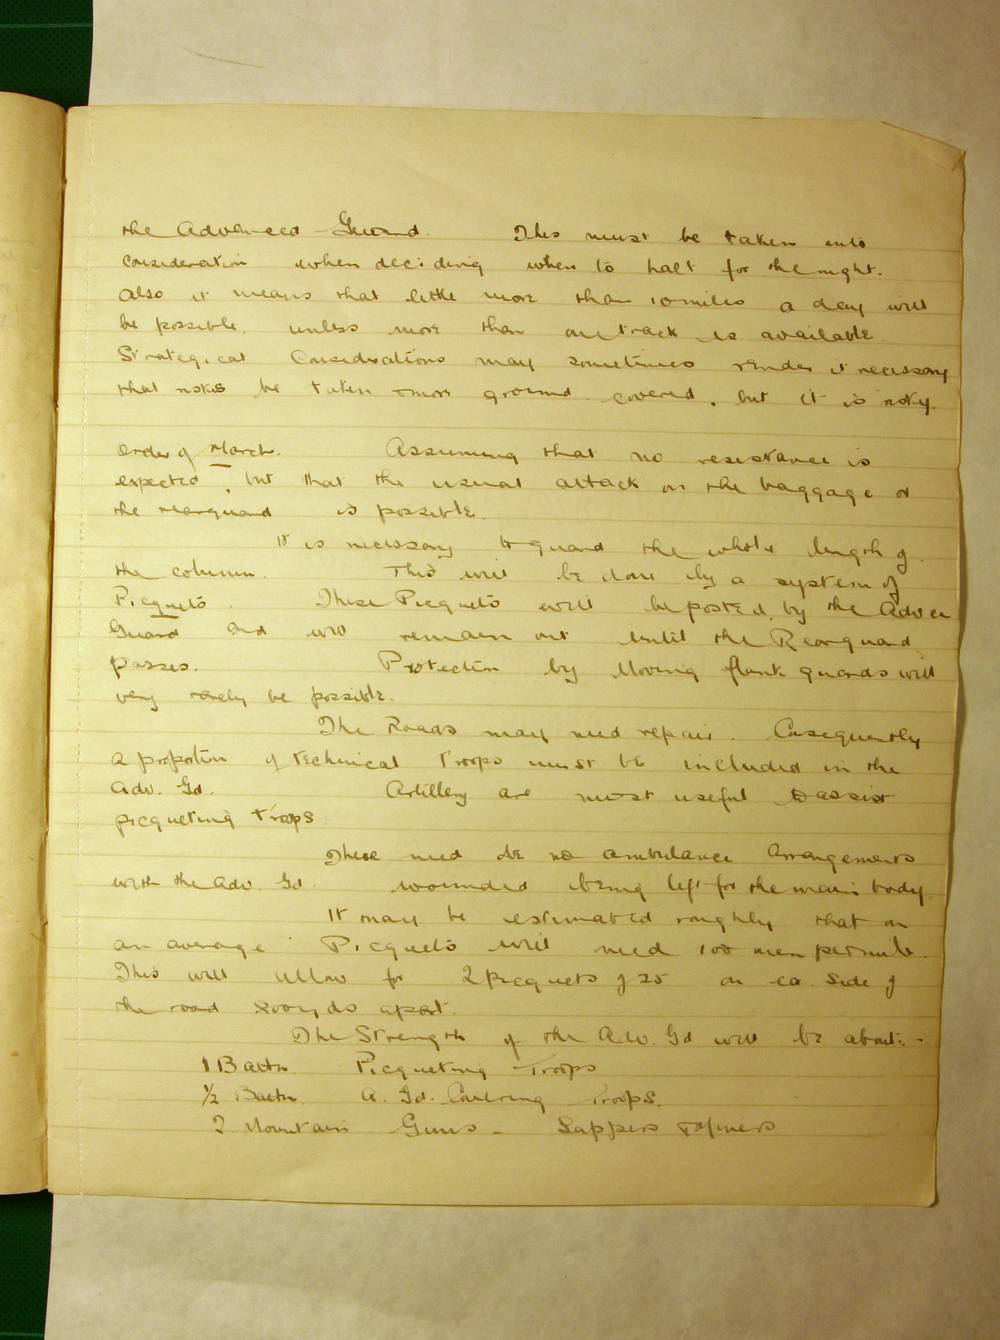 the Advanced Guard. This must be taken into
consideration when deciding when to halt for the night.
Also it means that little more than 10 miles a day will
be possible, unless more than one track is available.
Strategical Considerations may sometimes render it necessary
that risks be taken & more ground covered, but it is risky.
Order of March. Assuming that no resistance is
expected, but that the usual attack on the baggage or
the rearguard is possible.
It is necessary to guard the whole length of
the column. This will be done by a system of
Picquets. These Picquets will be posted by the Advce
Guard and will remain out until the Rearguard
passes. Protection by Moving flank guards will
very rarely be possible.
The Roads may need repair. Consequently
a proportion of technical Troops must be included in the
Adv. Gd. Artillery are most useful to assist
picqueting troops.
There need be no ambulance Arrangements
with the Adv. Gd. wounded being left for the main body.
It may be estimated roughly that on
an average Picquets will need 100 men per mile.
This will allow for 2 picquets of 25 on ea. side of
the road 800 yds apart.
The Strength of the Adv. Gd will be about:-
1 Battn. Picqueting Troops
½ Battn. A. Gd. Covering Troops.
2 Mountain Guns - Sappers & Miners